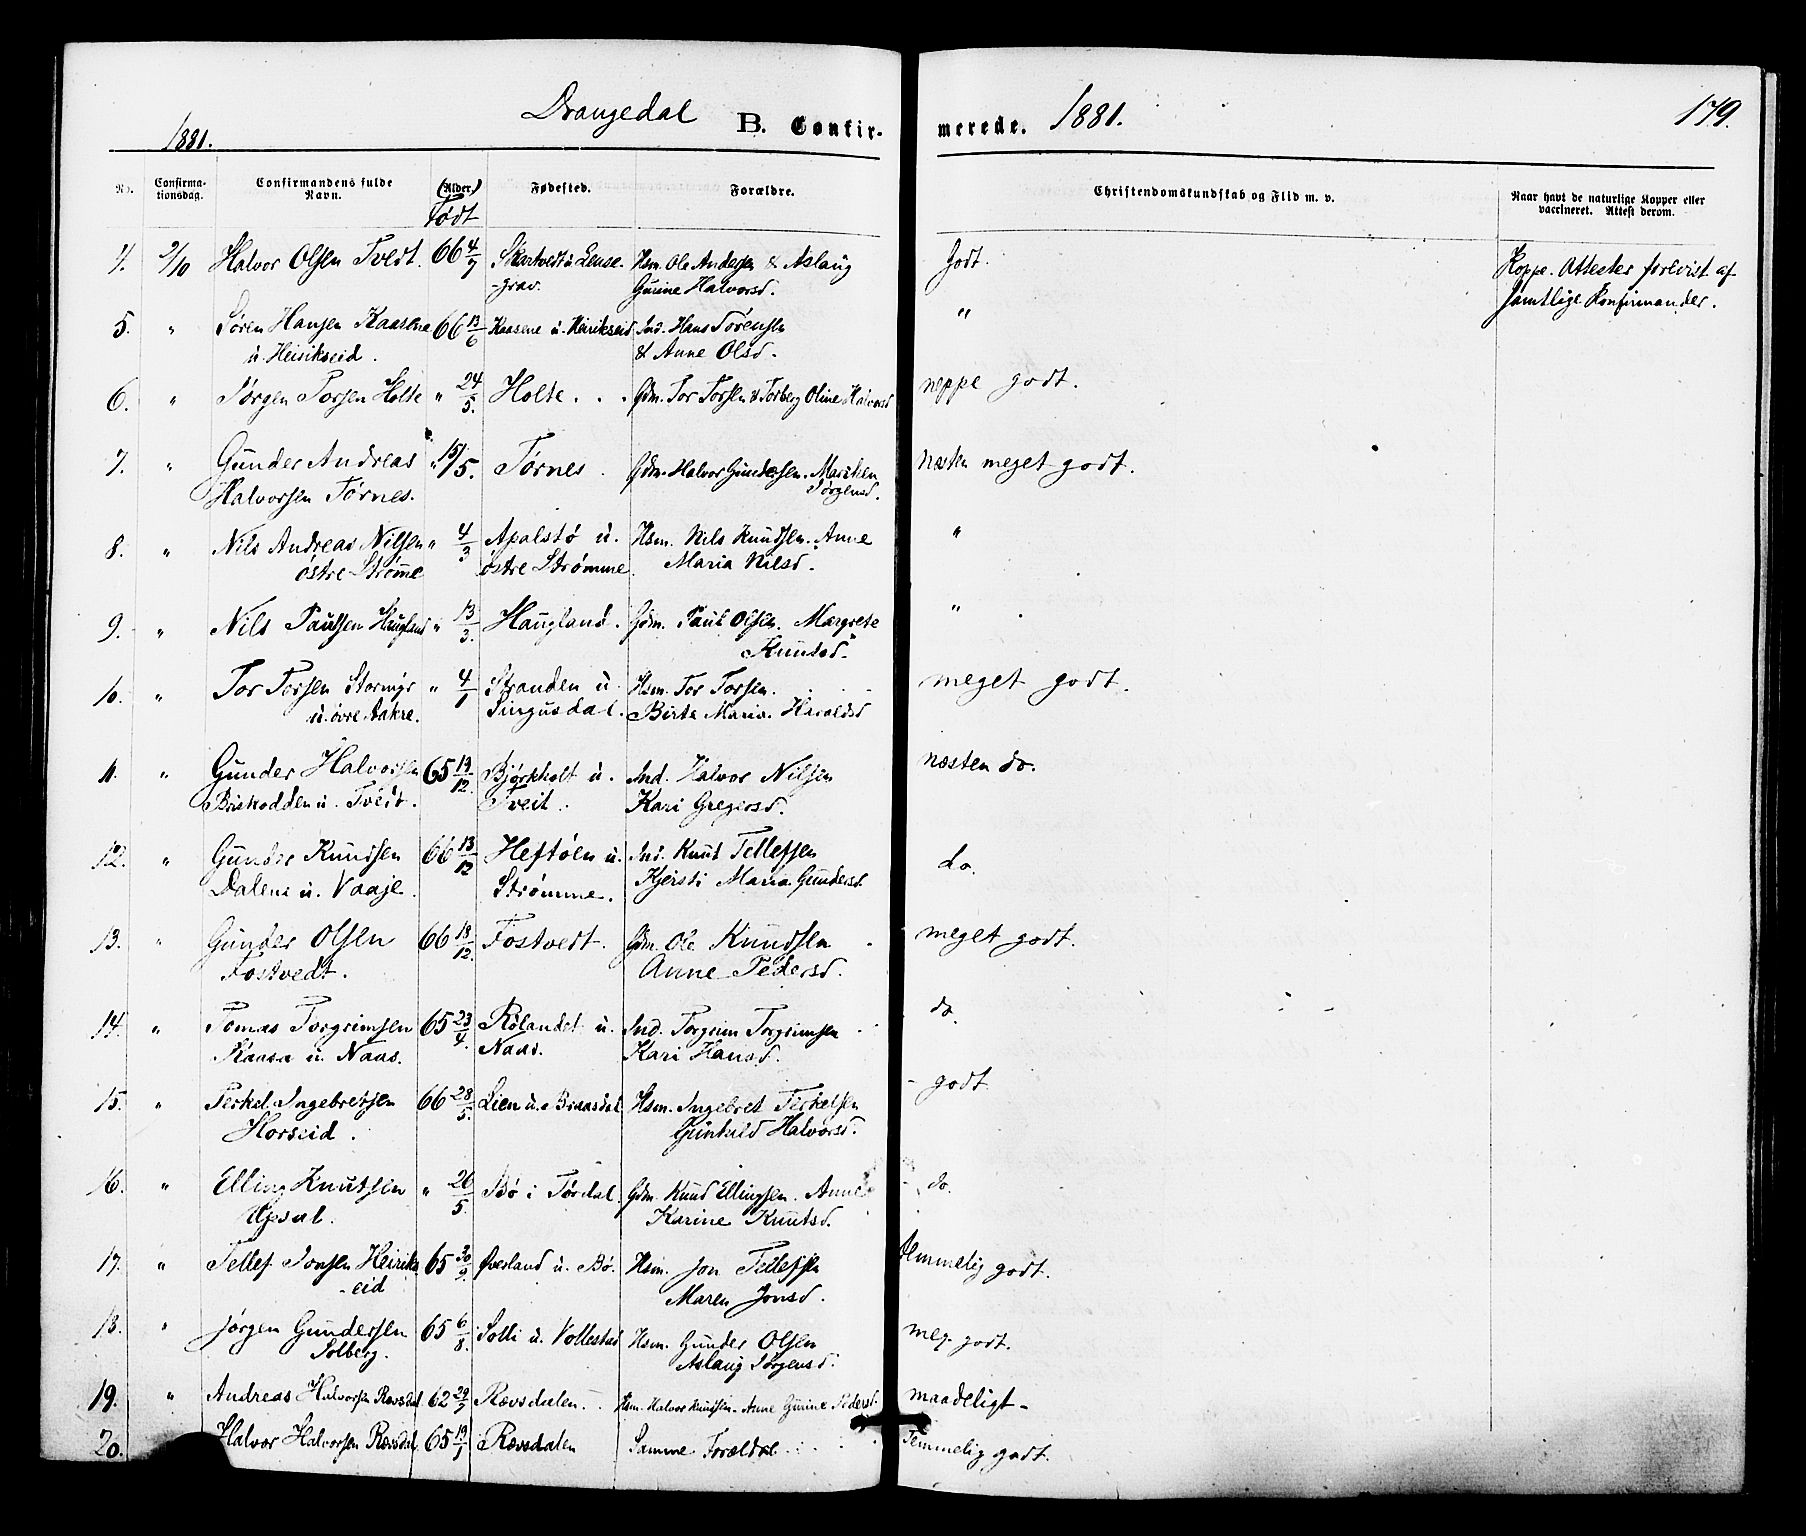 Drangedal
B. Confir-
1881.
No.
Confirma-
tionsdag.
Confirmandens fulde
Navn.
(Alder)
Født
Fødested.
Forældre.
4. 2/10 Halvor Olsen Tvedt. 66 4/7 Skartvedt u Lense- Hsm. Ole Andersen & Aslaug
-grav. Gurine Halvorsd.
5. " Søren Hansen Kaasene 66 13/6 Kaasene u. Heirikseid Ind. Hans Sørensen
u. Heirikseid. & Anne Olsd.
6. " Jørgen Torsen Holte " 24/5. Holte . . . Gdm. Tor Torsen & Torberg Oline Halvorsd
7. " Gunder Andreas " 15/5. Tørnes. Gdm. Halvor Gundersen. Marthen
Halvorsen Tørnes. Jørgensd.
8. " Nils Andreas Nilsen " 4/3 Apalstø u. Hsm. Nils Knudsen. Anne
østre Strømme østre Strømme. Maria Nilsd.
9. " Nils Paulsen Haugland " 13/3. Haugland. Gdm. Paul Olsen. Margrete
Knutsd.
10. " Tor Torsen Stormyr " 4/1 Stranden u. Hsm. Tor Torsen.
u. øvre Aakre. Singusdal. Birte Maria Haraldsd
11. " Gunder Halvorsen 65 19/12. Bjørkholt u. Ind. Halvor Nilsen
Briskodden u. Tvedt. Tveit. Kari Gregersd.
12. " Gunder Knudsen 66 13/12 Heftøen u. Ind. Knut Tellefsen
Dalene u. Vaaje. Strømme. Kjersti Maria Gundersd.
13. " Gunder Olsen 66 18/12. Fostvedt. Gdm. Ole Knudsen
Fostvedt. Anne Pedersd.
14. " Tomas Torgrimsen 65 23/4. Rølandet u. Ind. Torgrim Torgrimsen
Kaasa u. Naas. Naas. Kari Hansd.
15. " Terkel Ingebretsen 66 28/5. Lien u. Braasdal Hsm. Ingebret Terkelsen
Horseid. Gunhild Halvorsd.
16. " Elling Knutsen " 26/5 Bø i Tørdal. Gdm. Knud Ellingsen. Anne
Upsal. Karine Knutsd.
17. " Tellef Jonsen Heiriks 65 30/9. Øverland u. Bø. Hsm. Jon Tellefsen
-eid Maren Jonsd.
18. " Jørgen Gundersen 65 6/8. Solli u. Vollestad Hsm. Gunder Olsen
Solberg. Aslaug Jørgensd.
19. " Andreas Halvorsen Rævsdal 62 29/7 Rævsdalen. Hsm. Halvor Knudsen. Anne Gurine Pedersd.
20. Halvor Halvorsen Rævsdal 65 19/1 Rævsdalen Samme Forældre
merede. 1881. 179.
Christendomskundskab og Flid m. v.
Naar havt de naturlige Kopper eller
vaccineret. Attest derom.
godt. Koppe. Attester forevist af
samtlige Konfirmander.
"
neppe godt.
næsten meget godt.
"
"
meget godt.
næsten do.
do.
meget godt.
do.
- godt
- do.
temmelig godt.
meg. godt.
maadeligt -
Temmelig godt.